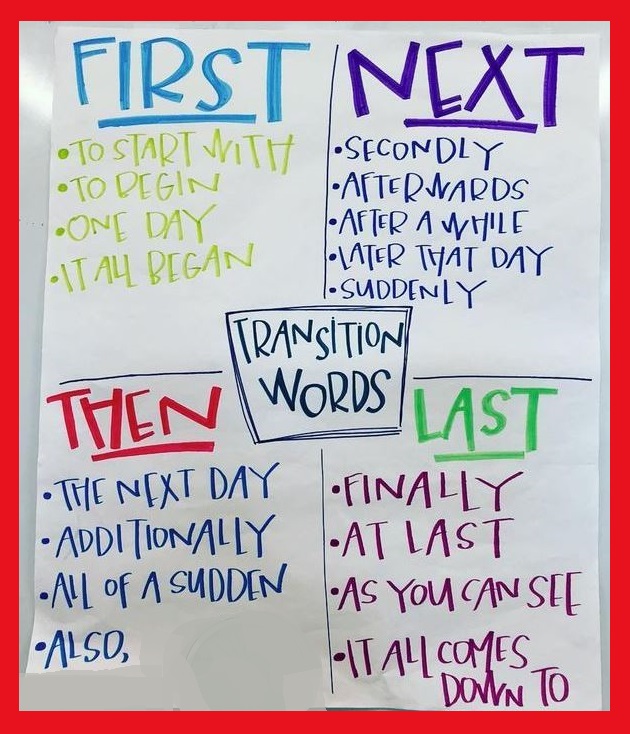 FIRST
•TO START WITH
•TO BEGIN
•ONE DAY
•IT ALL BEGAN
NEXT
•SECONDLY
•AFTERWARDS
•AFTER A WHILE
•LATER THAT DAY
•SUDDENLY
TRANSITION
WORDS
THEN
•THE NEXT DAY
•ADDITIONALLY
•ALL OF A SUDDEN
•ALSO,
LAST
•FINALLY
•AT LAST
•AS YOU CAN SEE
•IT ALL COMES
DOWN TO